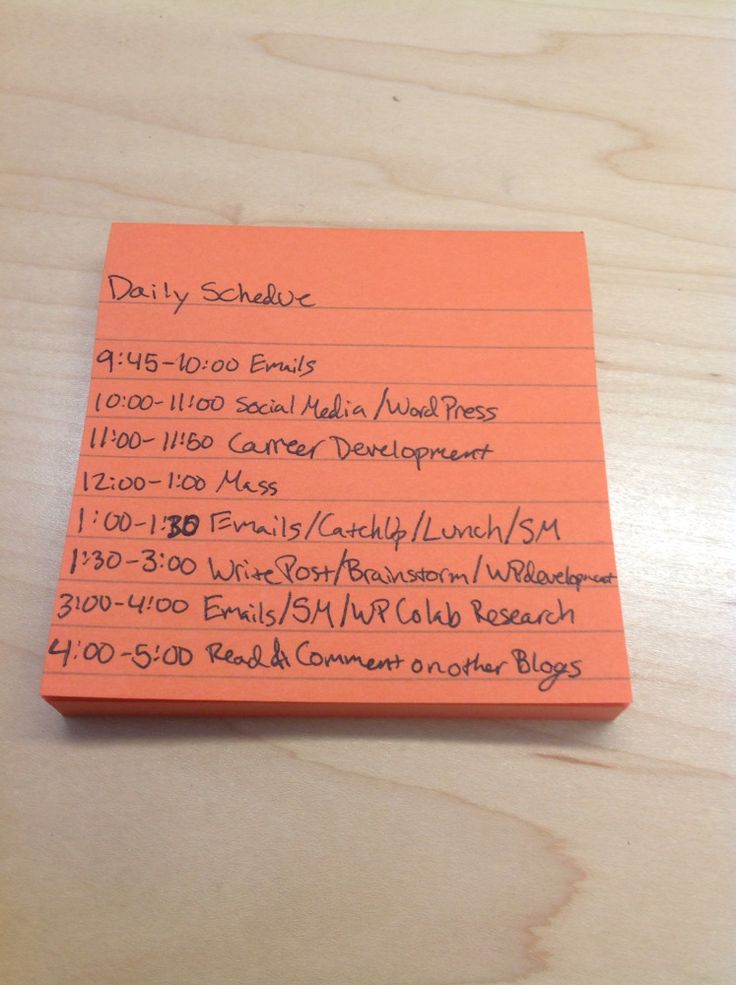 Daily Schedule
9:45-10:00 Emails
10:00-11:00 Social Media/WordPress
11:00-11:50 Carreer Development
12:00-1:00 Mass
1:00-1:30 Emails/CatchUp/Lunch/SM
1:30-3:00 Write Post/Brainstorm/WP development
3:00-4:00 Emails/SM/WP Colab Research
4:00-5:00 Read & Comment on other Blogs